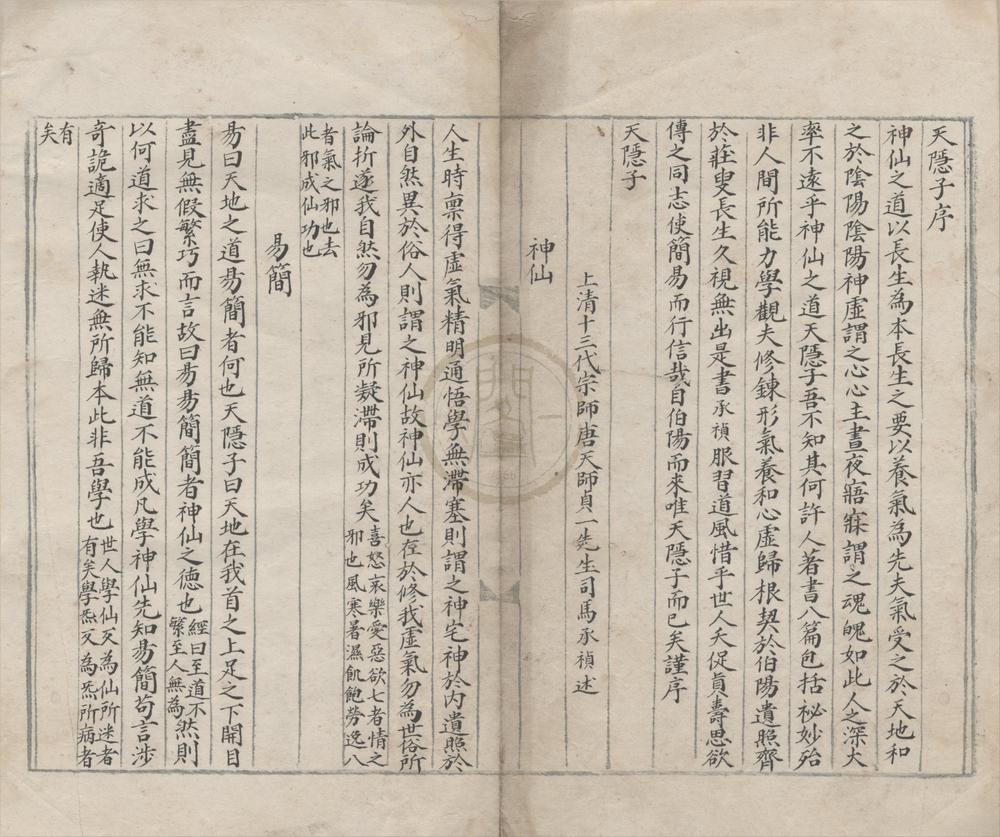 天隱子序
神仙之道以長生為本長生之要以養氣為先夫氣受之於天地和
之於陰陽陰陽神虛謂之心心主晝夜寤寐謂之魂魄如此人之深大
率不遠乎神仙之道天隱子吾不知其何許人著書八篇包括祕妙殆
非人間所能力學觀夫修鍊形氣養和心虛歸根契於伯陽遺照齊
於莊叟長生久視無出是書承禎服習道風惜乎世人夭促真壽思欲
傳之同志使簡易而行信哉自伯陽而來唯天隱子而已矣謹序
天隱子
上清十三代宗師唐天師貞一先生司馬承禎述
神仙
人生時禀得虛氣精明通悟學無滯塞則謂之神宅神於內遺照於
外自然異於俗人則謂之神仙故神仙亦人也在於修我虛氣勿為世俗所
論折遂我自然勿為邪見所凝滯則成功矣喜怒哀樂愛惡欲七者情之
邪也風寒暑濕飢飽勞逸八
者氣之邪也去
此邪成仙功也
易簡
易曰天地之道易簡者何也天隱子曰天地在我首之上足之下開目
盡見無假繁巧而言故曰易易簡簡者神仙之德也經曰至道不
繁至人無為然則
以何道求之曰無求不能知無道不能成凡學神仙先知易簡苟言涉
奇詭適足使人執迷無所歸本此非吾學也世人學仙反為仙所迷者
有矣學炁反為炁所病者
有
矣